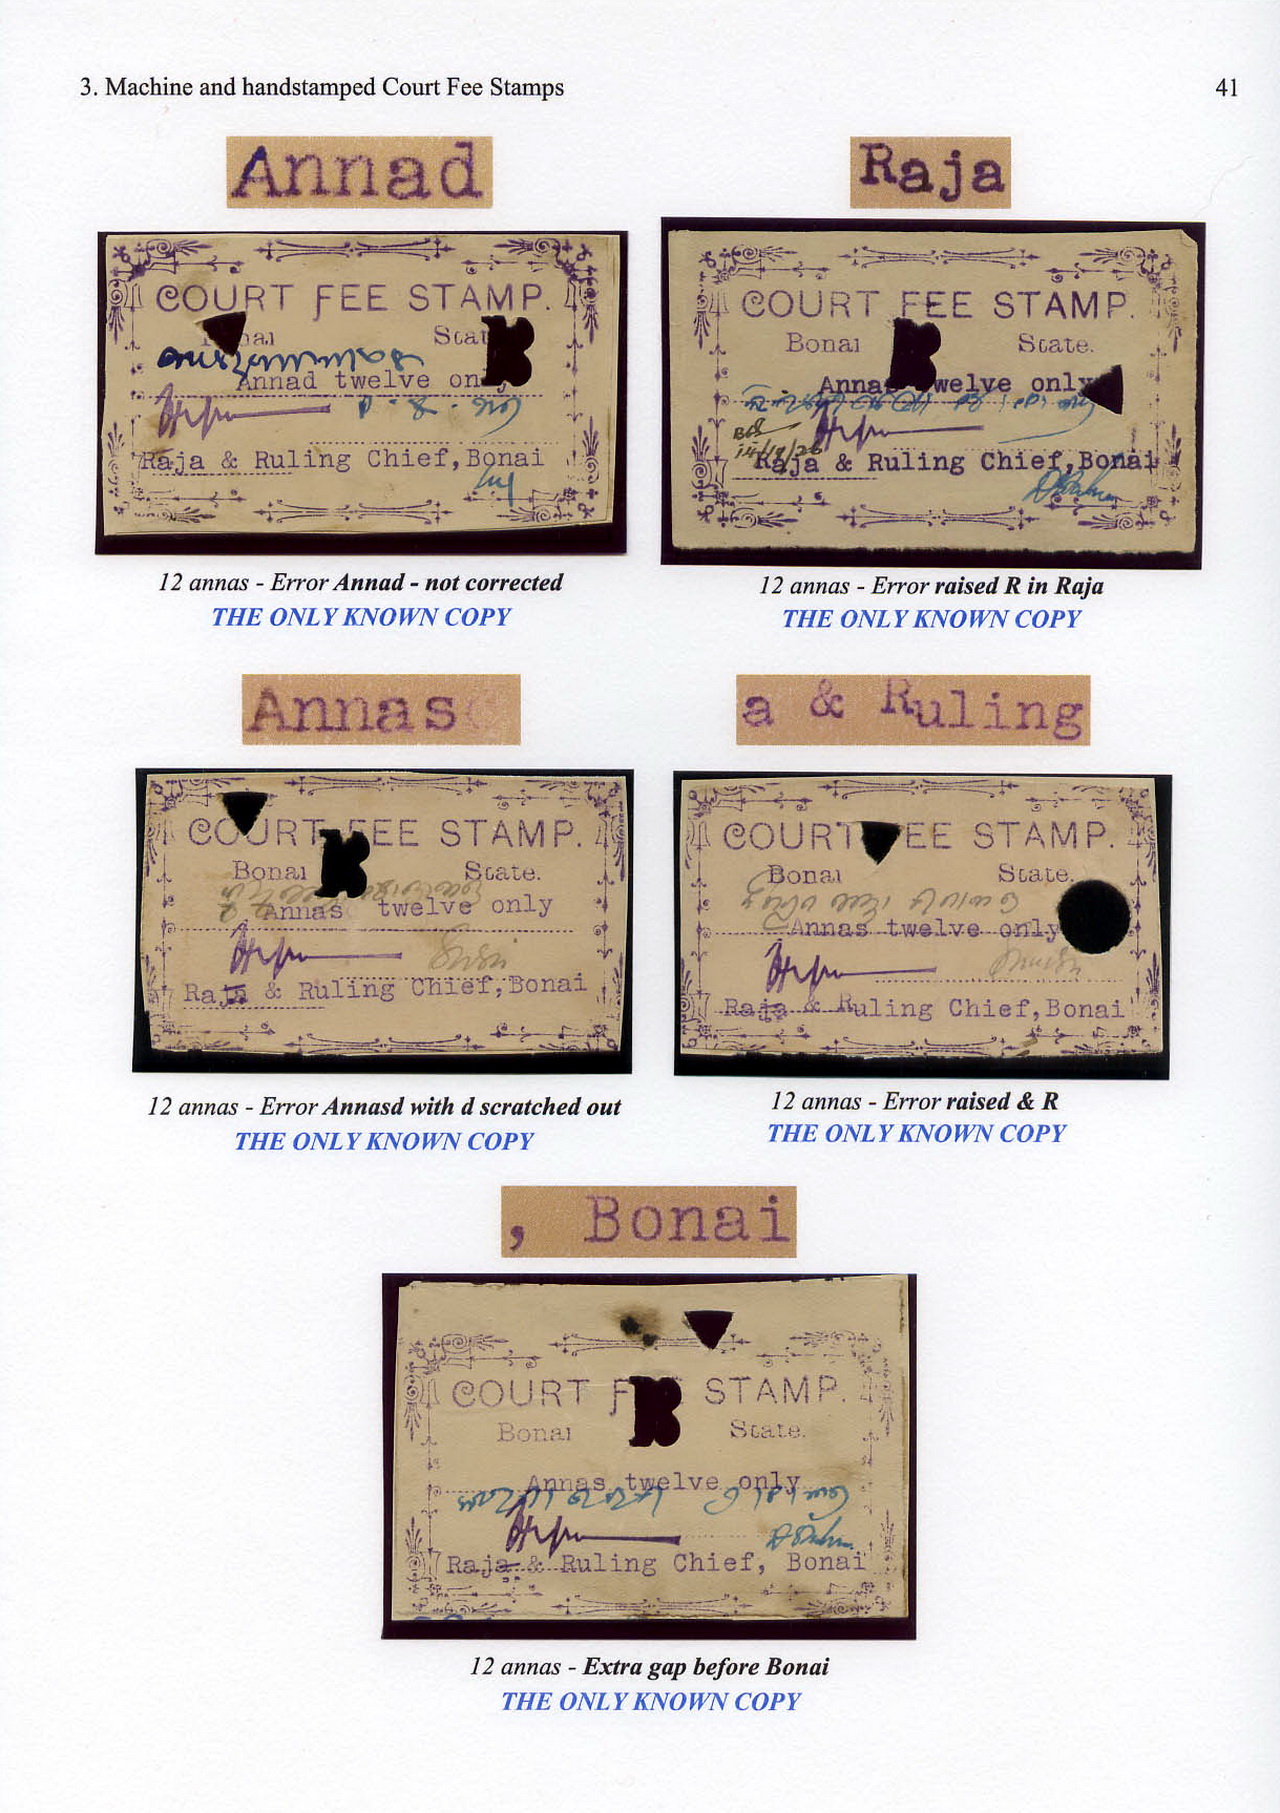 3. Machine and handstamped Court Fee Stamps 41
Annad
Raja
COURT FEE STAMP.
Bonai State
Annad twelve only
Raja & Ruling Chief,Bonai
COURT FEE STAMP.
Bonai State.
Annas twelve only
Raja & Ruling Chief,Bonai
12 annas - Error Annad - not corrected
THE ONLY KNOWN COPY
12 annas - Error raised R in Raja
THE ONLY KNOWN COPY
Annas
a & Ruling
COURT FEE STAMP.
Bonai State.
Annas twelve only
Raja & Ruling Chief,Bonai
COURT FEE STAMP.
Bonai State.
Annas twelve only
Raja & Ruling Chief,Bonai
12 annas - Error Annasd with d scratched out
THE ONLY KNOWN COPY
12 annas - Error raised & R
THE ONLY KNOWN COPY
, Bonai
COURT FEE STAMP.
Bonai State.
Annas twelve only
Raja & Ruling Chief, Bonai
12 annas - Extra gap before Bonai
THE ONLY KNOWN COPY